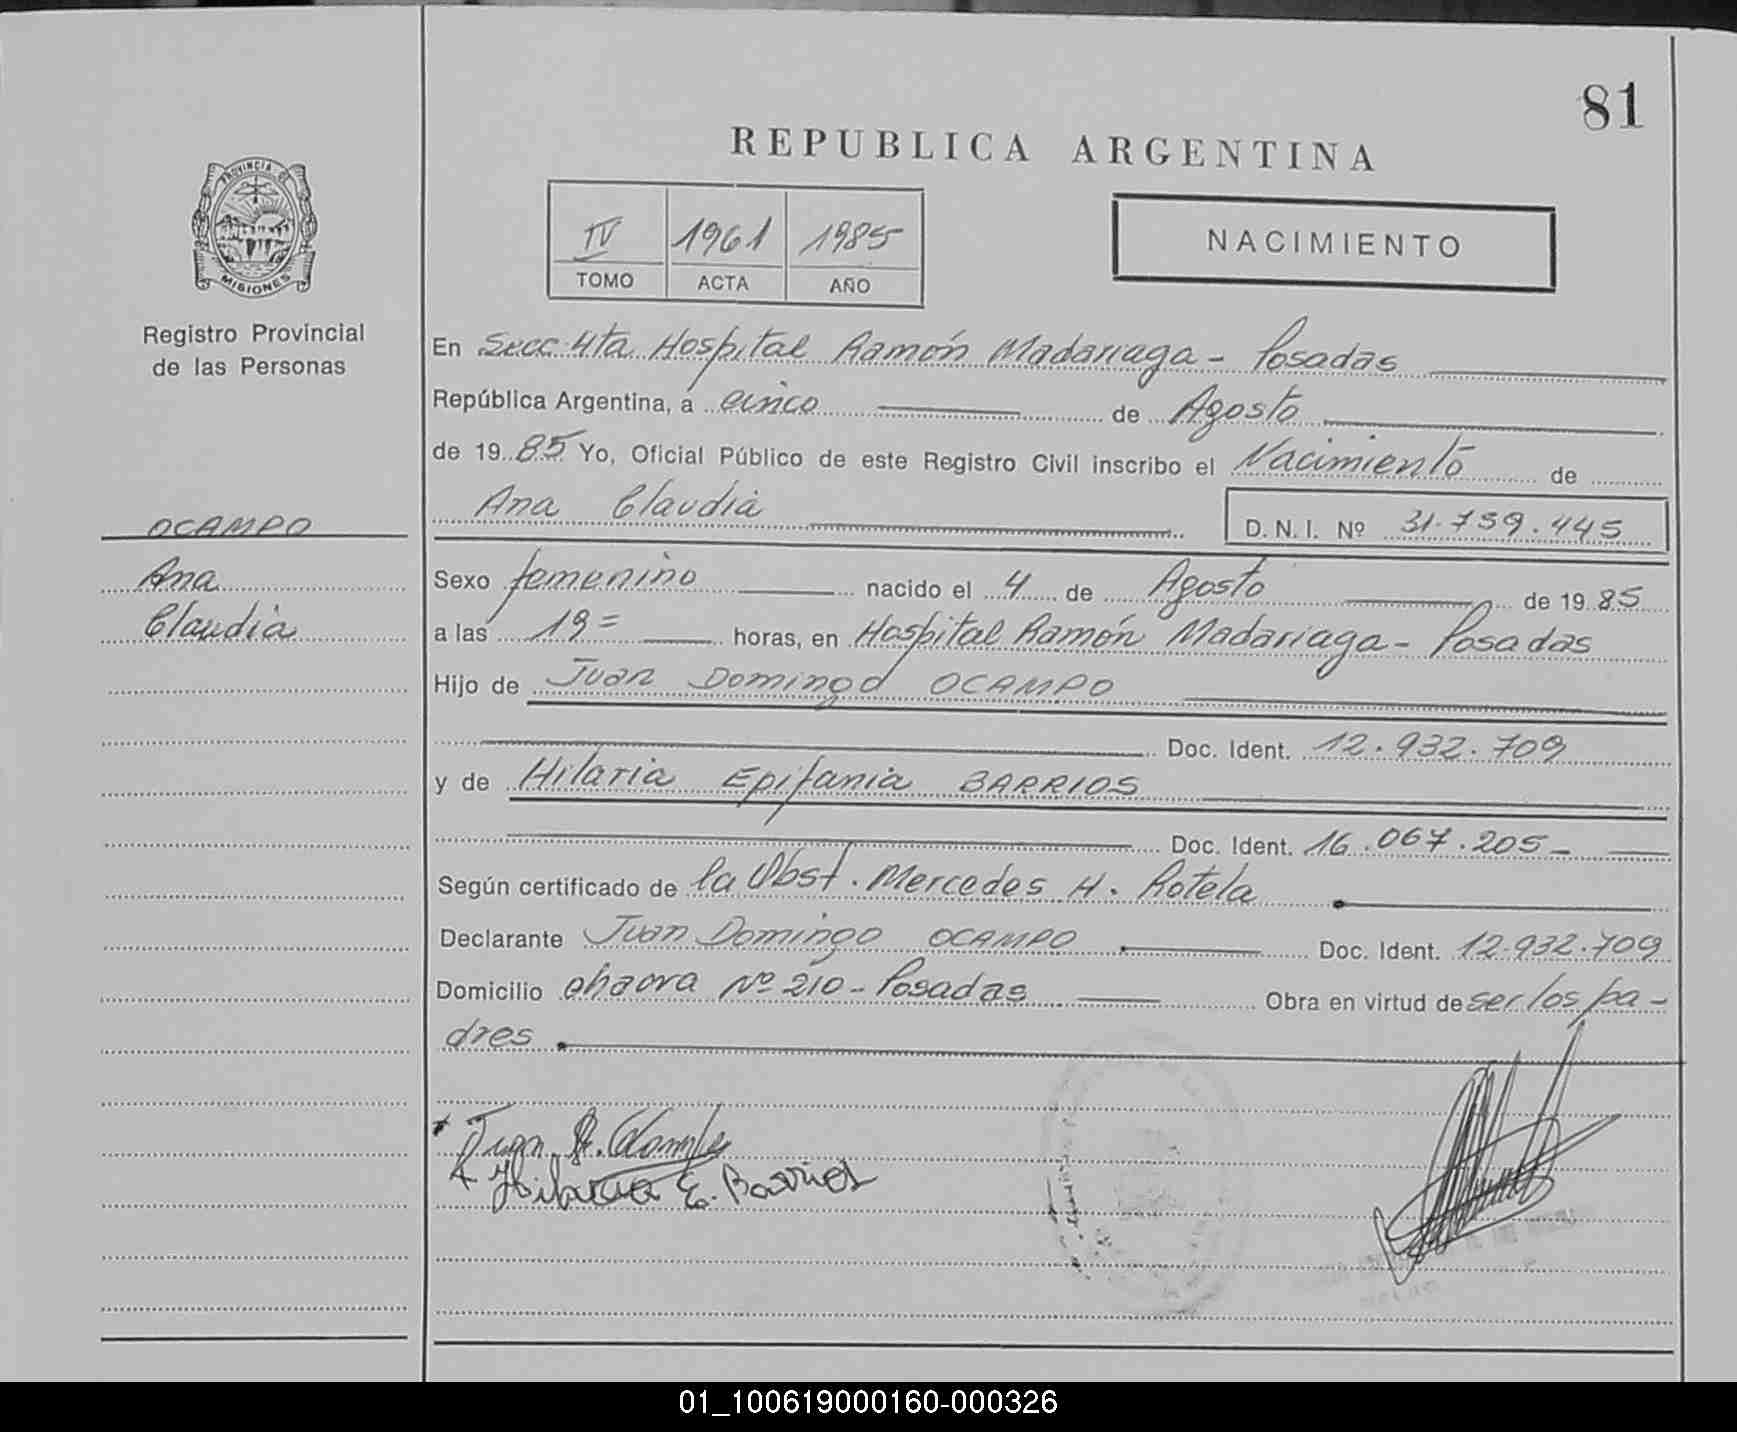 81
REPUBLICA ARGENTINA
PROVINCIA DE
MISIONES
Registro Provincial
de las Personas
IV 1961 1985
TOMO ACTA AÑO
NACIMIENTO
En Secc. 4ta Hospital Ramón Madariaga - Posadas
República Argentina, a cinco de Agosto
de 1985 Yo, Oficial Público de este Registro Civil inscribo el Nacimiento de
Ana Claudia D.N.I. Nº 31.759.445
OCAMPO
Ana
Claudia
Sexo femenino nacido el 4 de Agosto de 1985
a las 19= horas, en Hospital Ramón Madariaga - Posadas
Hijo de Juan Domingo OCAMPO
Doc. Ident. 12.932.709
y de Hilaria Epifania BARRIOS
Doc. Ident. 16.067.205-
Según certificado de la Obst. Mercedes H. Rotela
Declarante Juan Domingo OCAMPO Doc. Ident. 12.932.709
Domicilio chacra Nº 210 - Posadas Obra en virtud de ser los pa-
dres
Juan D. Ocampo
Hilaria E. Barrios
01_100619000160-000326